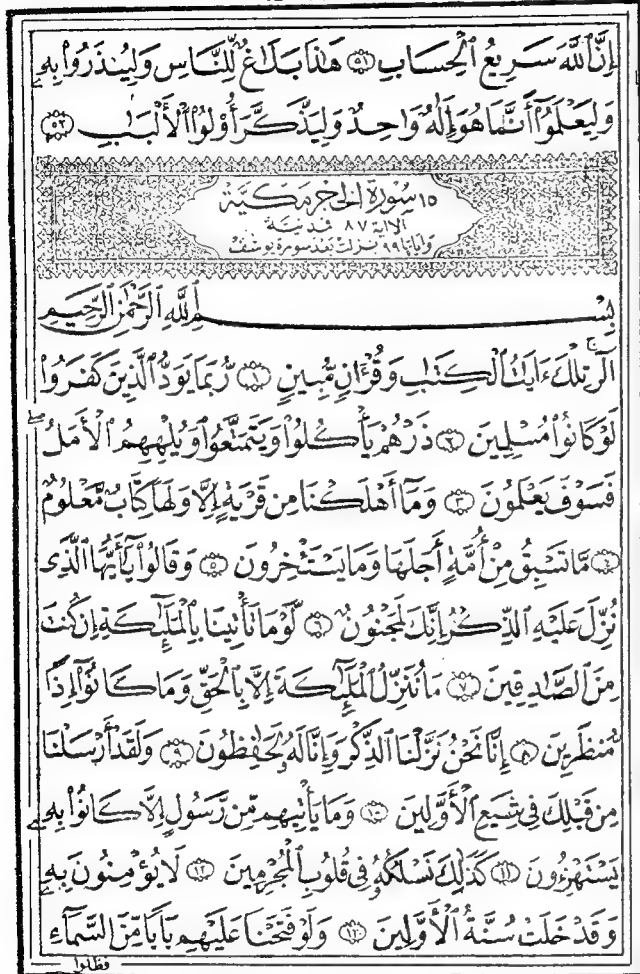 إِنَّ ٱللَّهَ سَرِيعُ ٱلْحِسَابِ ٥١ هَٰذَا بَلَٰغٌ لِّلنَّاسِ وَلِيُنذَرُوا۟ بِهِۦ
وَلِيَعْلَمُوٓا۟ أَنَّمَا هُوَ إِلَٰهٌ وَٰحِدٌ وَلِيَذَّكَّرَ أُو۟لُوا۟ ٱلْأَلْبَٰبِ ٥٢
١٥ سُورَةُ الحِجْرِ مَكِّيَّة
الا اية ٨٧ فمدنية
وآياتها ٩٩ نزلت بعد سورة يوسف
بِسْمِ ٱللَّهِ ٱلرَّحْمَٰنِ ٱلرَّحِيمِ
الٓر تِلْكَ ءَايَٰتُ ٱلْكِتَٰبِ وَقُرْءَانٍ مُّبِينٍ ١ رُّبَمَا يَوَدُّ ٱلَّذِينَ كَفَرُوا۟
لَوْ كَانُوا۟ مُسْلِمِينَ ٢ ذَرْهُمْ يَأْكُلُوا۟ وَيَتَمَتَّعُوا۟ وَيُلْهِهِمُ ٱلْأَمَلُ
فَسَوْفَ يَعْلَمُونَ ٣ وَمَآ أَهْلَكْنَا مِن قَرْيَةٍ إِلَّا وَلَهَا كِتَابٌ مَّعْلُومٌ
٤ مَّا تَسْبِقُ مِنْ أُمَّةٍ أَجَلَهَا وَمَا يَسْتَـْٔخِرُونَ ٥ وَقَالُوا۟ يَٰٓأَيُّهَا ٱلَّذِى
نُزِّلَ عَلَيْهِ ٱلذِّكْرُ إِنَّكَ لَمَجْنُونٌ ٦ لَّوْ مَا تَأْتِينَا بِٱلْمَلَٰٓئِكَةِ إِن كُنتَ
مِنَ ٱلصَّٰدِقِينَ ٧ مَا نُنَزِّلُ ٱلْمَلَٰٓئِكَةَ إِلَّا بِٱلْحَقِّ وَمَا كَانُوٓا۟ إِذًا
مُّنظَرِينَ ٨ إِنَّا نَحْنُ نَزَّلْنَا ٱلذِّكْرَ وَإِنَّا لَهُۥ لَحَٰفِظُونَ ٩ وَلَقَدْ أَرْسَلْنَا
مِن قَبْلِكَ فِى شِيَعِ ٱلْأَوَّلِينَ ١٠ وَمَا يَأْتِيهِم مِّن رَّسُولٍ إِلَّا كَانُوا۟ بِهِۦ
يَسْتَهْزِءُونَ ١١ كَذَٰلِكَ نَسْلُكُهُۥ فِى قُلُوبِ ٱلْمُجْرِمِينَ ١٢ لَا يُؤْمِنُونَ بِهِۦ
وَقَدْ خَلَتْ سُنَّةُ ٱلْأَوَّلِينَ ١٣ وَلَوْ فَتَحْنَا عَلَيْهِم بَابًا مِّنَ ٱلسَّمَآءِ
فظلوا